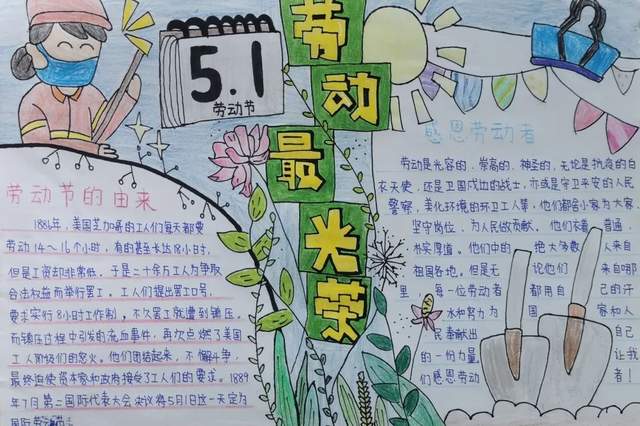 5.1
劳动节
劳动最光荣
劳动节的由来
1886年,美国芝加哥的工人们每天都要
劳动14～16个小时,有的甚至长达18小时,
但是工资却非常低。于是二十余万工人为争取
合法权益而举行罢工。工人们提出罢工口号,
要求实行8小时工作制,不久罢工就遭到镇压,
而镇压过程中引发的流血事件,再次点燃了美国
工人阶级们的怒火。他们团结起来,不懈斗争,
最终迫使资本家和政府接受了工人们的要求。1889
年7月第二国际代表大会决议将5月1日这一天定为
国际劳动节
感恩劳动者
劳动是光容的、崇高的、神圣的,无论是抗疫的白
衣天使,还是卫国戍边的战士,亦或是守卫平安的人民
警察,美化环境的环卫工人等,他们都舍小家为大家,
坚守岗位,为人民做贡献。他们本着普通
朴实厚道。他们中的绝大多数人来自
祖国各地,但是无论他们来自哪
里 每一位劳动者都用自己的汗
水和努力为国家和人
民奉献出自己
的一份力量 让我
们感恩劳动者!